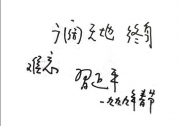 广阔天地 终身
难忘 習近平
一九九九年春节